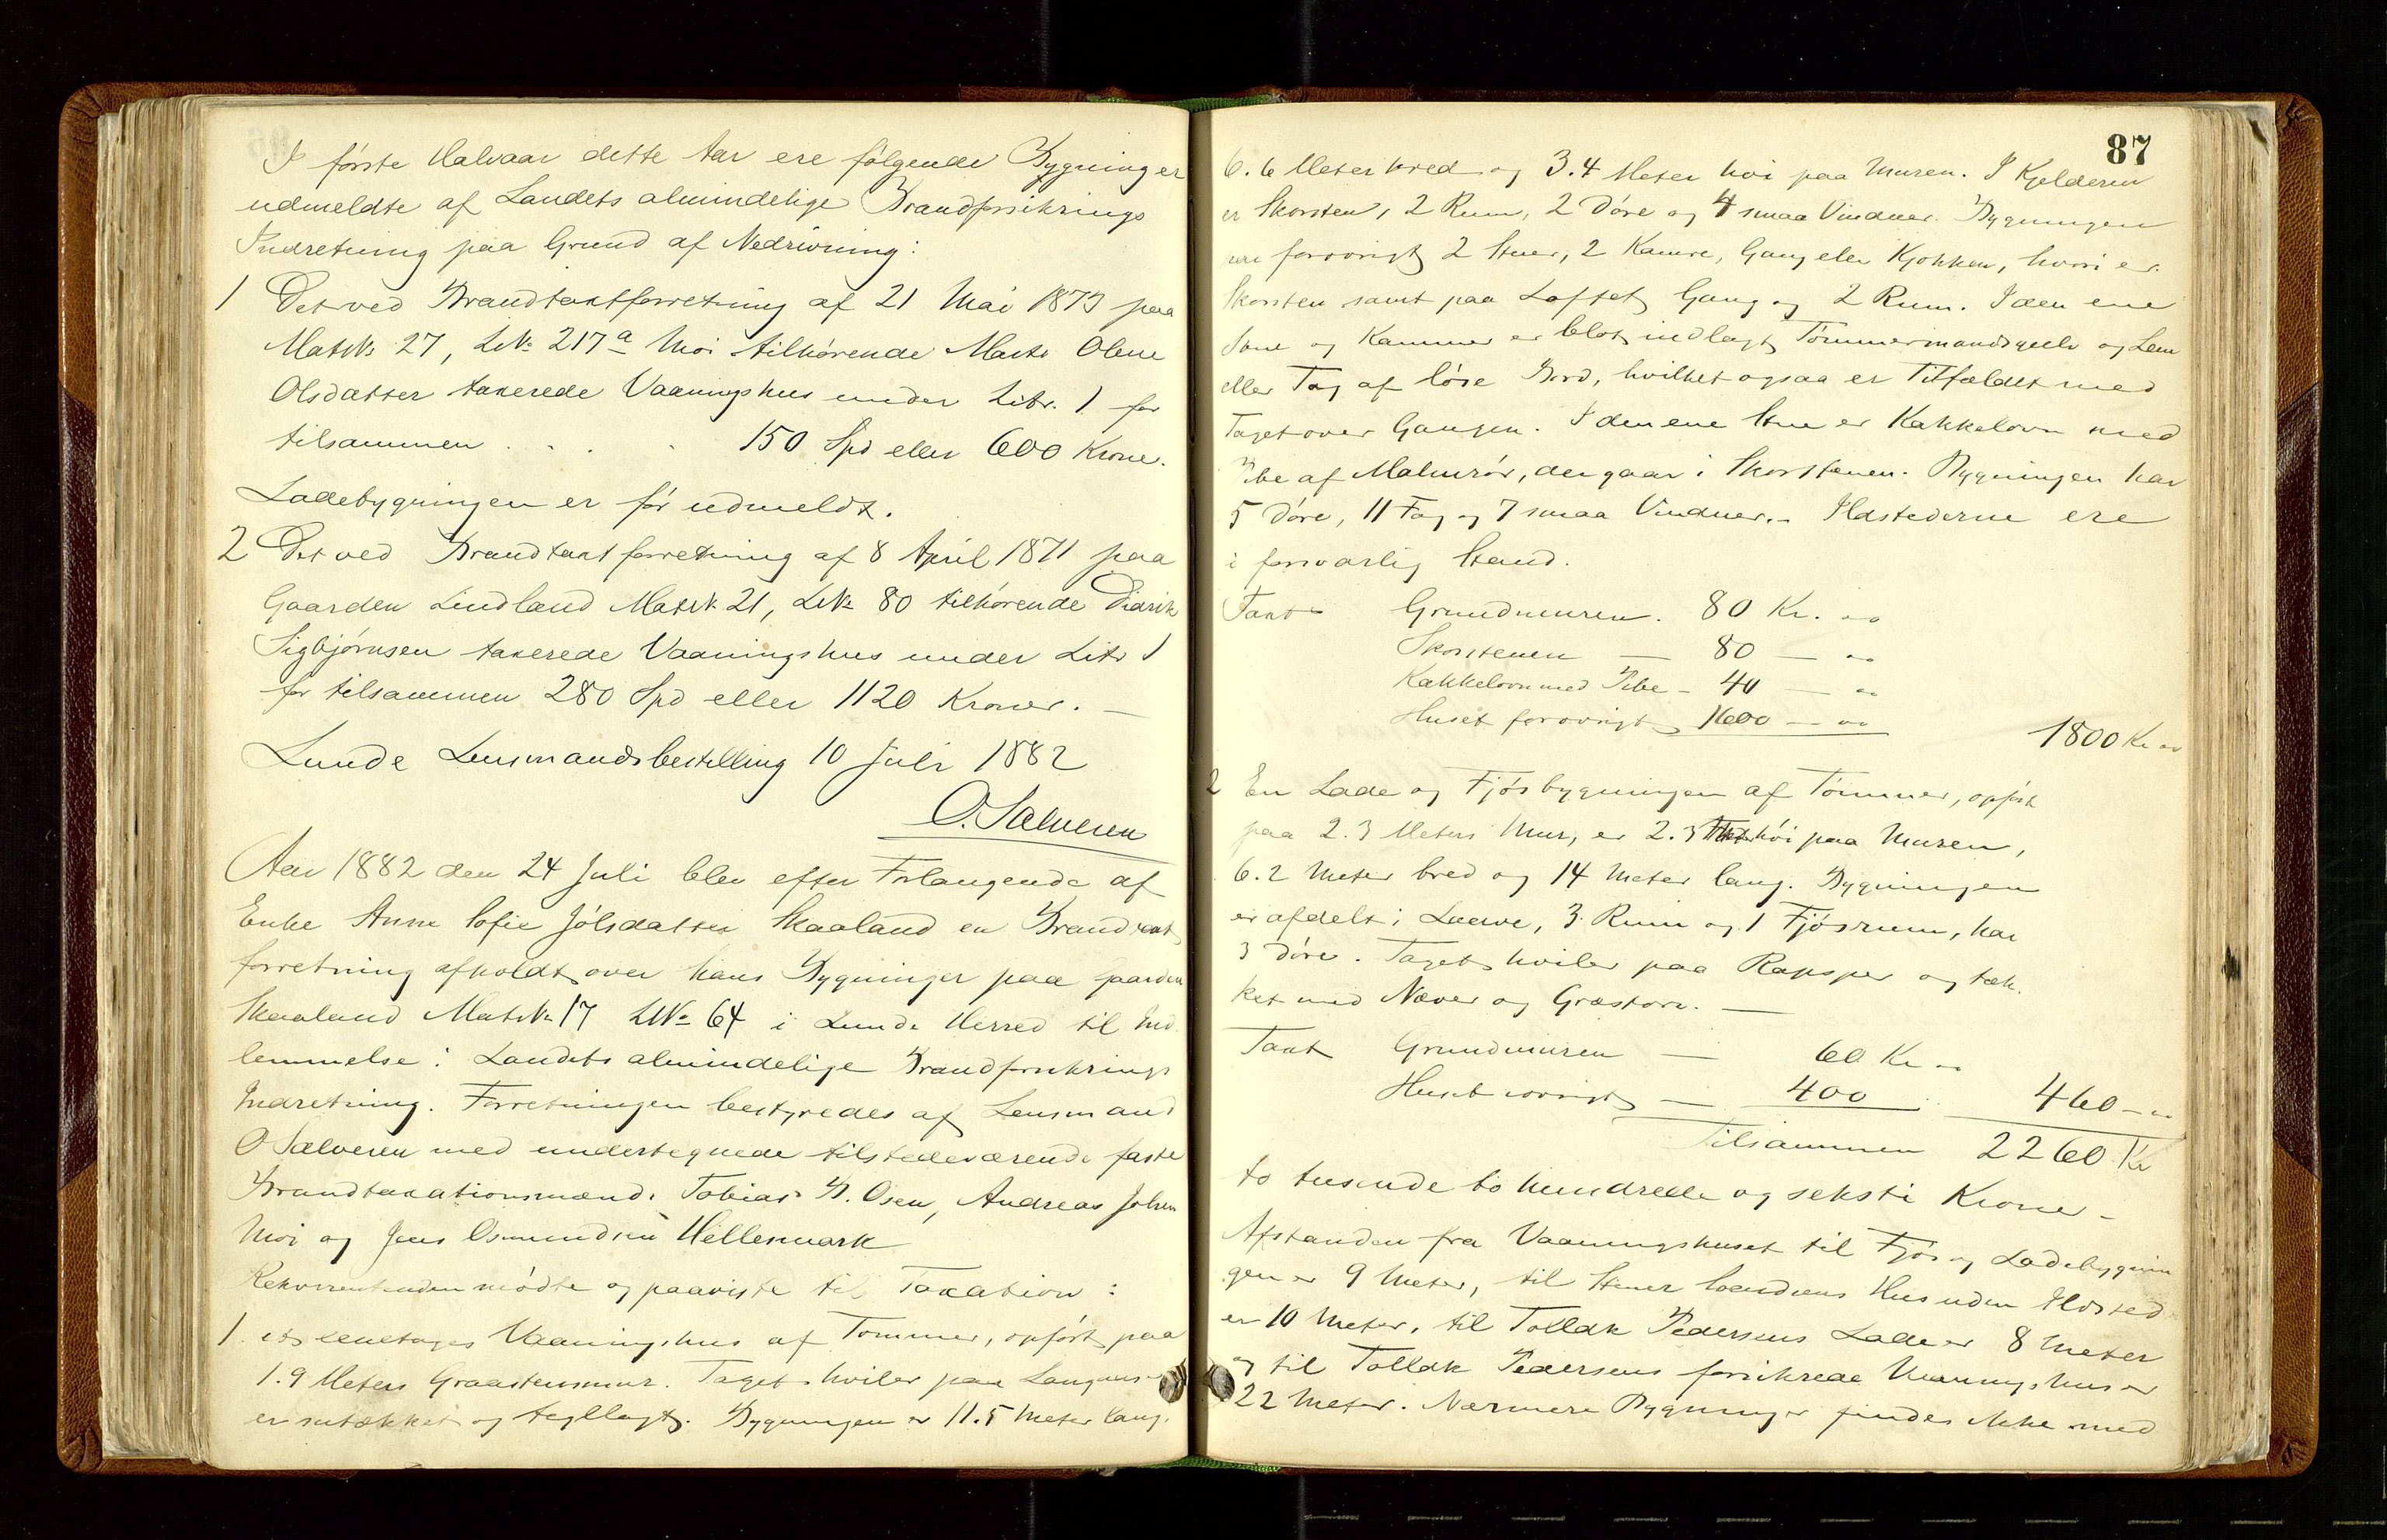 I første Halvaar dette Aar ere følgende Bygninger
udmeldte af Landets almindelige Brandforsikrings
Indretning paa Grund af Nedrivning:
1 Det ved Brandtaxtforretning af 21 Mai 1873 paa
MatrN 27, LN: 217a Moi tilhørende Marte Olene
Olsdatter taxerede Vaaningshus under Litr. 1 for
tilsammen . . . 150 Spd eller 600 Krone.
Ladebygningen er før udmeldt.
2 Det ved Brandtaxtforretning af 8 April 1871 paa
Gaarden Lindland MatrN 21, LN: 80 tilhørende Didrik
Sigbjørnsen taxerede Vaaningshus under Litr 1
for tilsammen 280 Spd eller 1120 Kroner. —
Lunde Lensmandsbestilling 10 Juli 1882
O. Sælvesen
Aar 1882 den 24 Juli blev efter Forlangende af
Enke Anne Sofie Jølsdatter Skaaland en Brandtaxt
forretning afholdt over hans Bygninger paa Gaarden
Skaaland MatrN 17 LN: 64 i Lunde Herred til Ind
lemmelse i Landets almindelige Brandforsikrings
Indretning. Forretningen bestyredes af Lensmand
O Sælvesen med undertegnede tilstedeværende faste
Brandtaxationsmænd: Tobias B. Osen, Andreas Johnsen
Moi og Jens Osmundsen Hellesmark
Rekvirentinden mødte og paaviste til Taxation:
1. et eenetages Vaaningshus af Tømmer, opført paa
1.9 Meters Graastensmur. Taget hviler paa
er sutækket og tegllagt. Bygningen er 11.5 Meter lang,
87
6.6 Meter bred og 3.4 Meter høi paa Muren. I Kjelderen
er Skorsten, 2 Rum, 2 Døre og 4 smaa Vinduer. Bygningen
har forøvrigt 2 Stuer, 2 Kamre, Gang eller Kjøkken, hvori er
Skorsten samt paa Loftet Gang og 2 Rum. I den ene
Stue og Kammer er blot indlagt Tømmermandsgulv og Lem
eller Tag af løse Bord, hvilket ogsaa er Tilfældet med
Taget over Gangen. I den ene Stue er Kakkelovn med
Pibe af Malmrør, der gaar i Skorstenen. Bygningen har
5 Døre, 11 Fag og 7 smaa Vinduer. – Ildstederne ere
i forsvarlig Stand.
Taxt Grundmuren . 80 Kr. "
Skorstenen — 80 — "
Kakkelovn med Pibe – 40 — "
Huset forøvrigt 1600 — "
1800 Kr "
2 En Lade og Fjøsbygningen af Tømmer, opført
paa 2.3 Meters Mur, er 2.3 Meter høi paa Muren,
6.2 Meter bred og 14 Meter lang. Bygningen
er afdelt i Laave, 3 Rum og 1 Fjøsrum, har
3 Døre. Taget hviler paa og tæk
ket med Næver og Græstorv. —
Taxt Grundmuren — 60 Kr "
Huset iøvrigt — 400
460 – "
Tilsammen 2260 Kr
to tusinde to hundrede og seksti Kroner –
Afstanden fra Vaaningshuset til Fjøs og Ladebygnin
gen er 9 Meter, til Hus uden Ildsted
er 10 Meter, til Tollak Pedersens Lade er 8 Meter
og til Tollak Pedersens forsikrede Vaaningshus er
22 Meter. Nærmere Bygninger findes ikke med